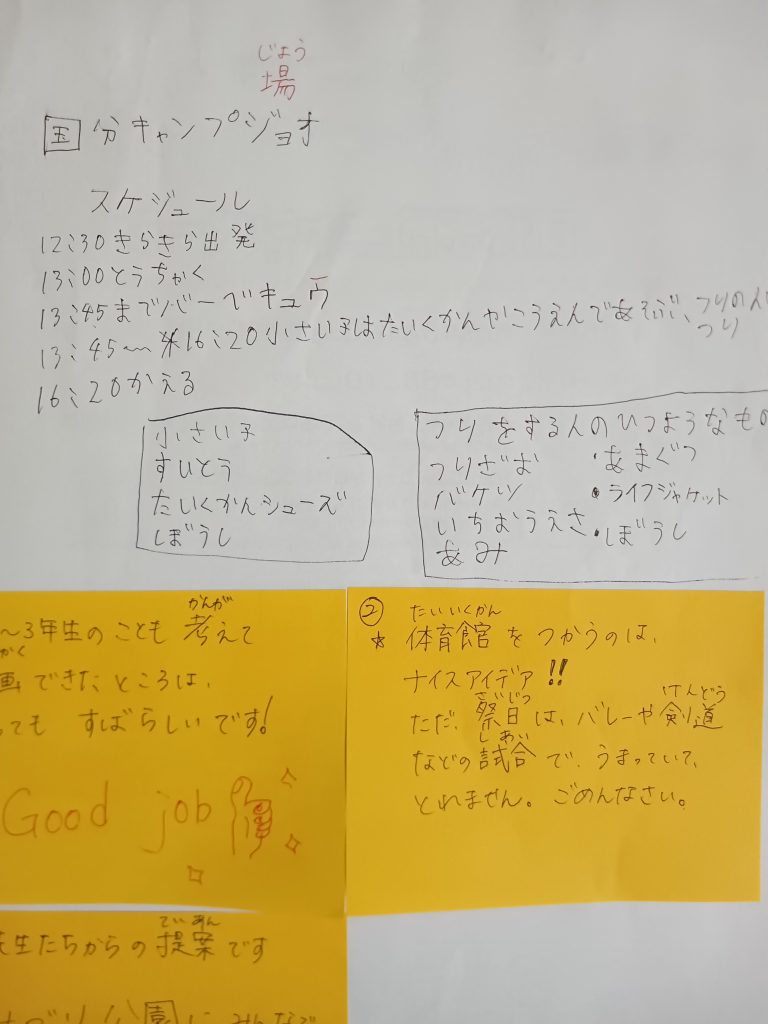 じょう
場
国分キャンプジョオ
スケジュール
12:30きらきら出発
13:00とうちゃく
13:45までバーベキュウ
13:45〜16:20小さい子はたいくかんやこうえんであそぶ、つりの人
つり
16:20かえる
小さい子
すいとう
たいくかんシューズ
ぼうし
つりをする人のひつようなもの
つりざお ・あまぐつ
バケツ ・ライフジャケット
いちおうえさ ・ぼうし
あみ
かんが
〜3年生のことも考えて
かく
画できたところは、
っても すばらしいです!
Good job
② たいいくかん
☆ 体育館をつかうのは、
ナイスアイデア!!
さいじつ けんどう
ただ、祭日は、バレーや剣道
しあい
などの試合で、うまっていて、
とれません。ごめんなさい。
ていあん
生たちからの提案です
公園にみんなで